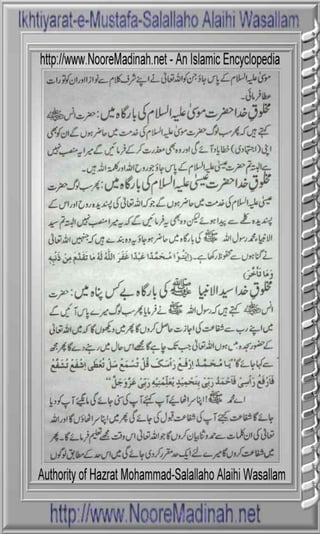 Ikhtiyarat-e-Mustafa-Salallaho Alaihi Wasallam
http://www.NooreMadinah.net - An Islamic Encyclopedia
موسیٰ علیہ السلام کے پاس جاؤ جن کو اللہ تعالیٰ نے اپنے شرف کلام سے نوازا اور ان کو تورات
عطا فرمائی۔
مخلوق خدا حضرت موسیٰ علیہ السلام کی بارگاہ میں: حضرت انس
کہتے ہیں کہ پھر سب لوگ حضرت موسیٰ علیہ السلام کی خدمت میں حاضر ہوں گے ان کو بھی
اپنی (اجتہادی) خطا یاد آئے گی اور وہ بھی معذرت کر کے فرمائیں گے میرا یہ منصب نہیں
ہے البتہ تم حضرت عیسیٰ علیہ السلام کے پاس جاؤ جو روح اللہ اور کلمۃ اللہ ہیں۔
مخلوق خدا حضرت عیسیٰ علیہ السلام کی بارگاہ میں: پھر سب لوگ حضرت
عیسیٰ علیہ السلام کی خدمت میں حاضر ہوں گے جو کہ اللہ تعالیٰ کی پسندیدہ روح اور اس کے
پسندیدہ کلمے سے پیدا ہوئے لیکن وہ بھی یہ فرمائیں گے کہ یہ میرا منصب نہیں البتہ تم سید
الانبیاء محمد رسول اللہ ﷺ کی بارگاہ میں حاضر ہو جاؤ یہ وہ بندے ہیں کہ جنہیں اللہ تعالیٰ
نے گناہوں سے محفوظ رکھا ہے۔ (ایتوا محمدا عبدا غفر الله له ما تقدم من ذنبه
وما تأخر)
مخلوق خدا سید الانبیا ﷺ کی بارگاہ بے کس پناہ میں: حضرت
انس کہتے ہیں کہ رسول اللہ ﷺ نے فرمایا پھر سب لوگ میرے پاس آئیں گے
میں اپنے رب سے شفاعت کی اجازت حاصل کروں گا پھر میں دیکھوں گا کہ میں اللہ تعالیٰ
کے حضور سجدہ میں ہوں اللہ تعالیٰ جب تک چاہے گا مجھے اس حال میں رہنے دے گا پھر مجھ
سے کہا جائے گا "یا محمد ارفع رأسک قل تسمع سل تعطى اشفع تشفع
فارفع رأسی فاحمد ربی بتحمید یعلمنیه ربی عزوجل"
اے محمد ﷺ! اپنا سر اٹھائیے آپ کہئے آپ کی سنی جائے گی مانگئے آپ کو دیا
جائے گا شفاعت کیجئے آپ کی شفاعت قبول کی جائے گی پھر میں اپنا سر اٹھاؤں گا اور اللہ
تعالیٰ کی ان کلمات سے حمد و ثنا بیان کروں گا جو اللہ تعالیٰ اس وقت مجھے تعلیم فرمائے گا۔ پھر
میں شفاعت کروں گا میرے لئے ایک حد مقرر کر دی جائے گی میں اس حد کے مطابق لوگوں
Authority of Hazrat Mohammad-Salallaho Alaihi Wasallam
http://www.NooreMadinah.net